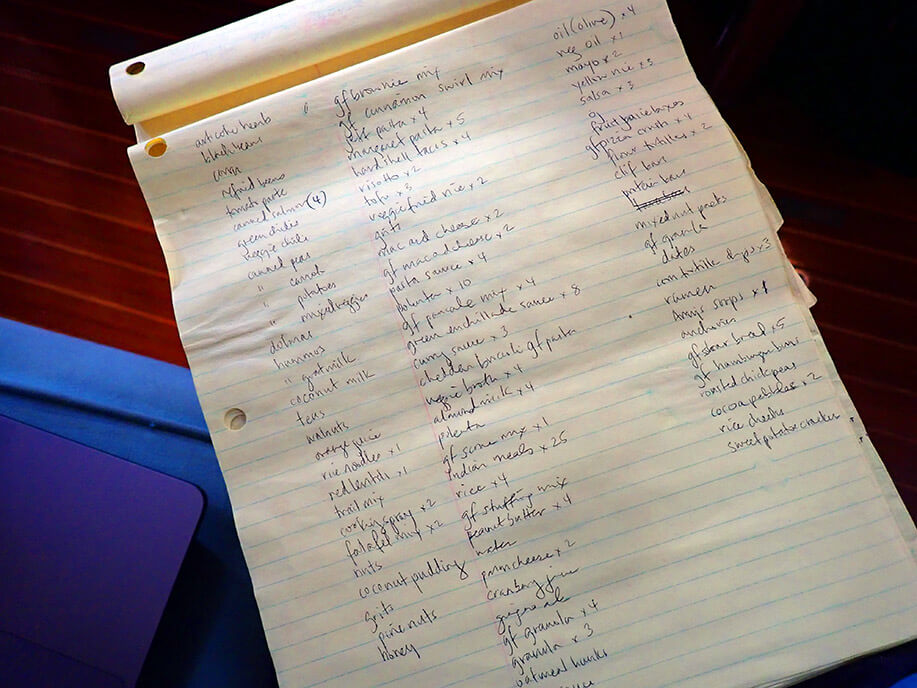 artichoke hearts
black beans
corn
refried beans
tomato paste
canned salmon (4)
green chiles
veggie chili
canned peas
" carrots
" potatoes
" mixed veggies
dolmas
hummos
" goat milk
coconut milk
teas
walnuts
orange juice
rice noodles x 1
red lentils x 1
trail mix
cooking spray x 2
falafel mix x 2
nuts
coconut pudding
grits
pine nuts
honey
gf brownie mix
gf cinnamon swirl mix
pasta x 4
pasta x 5
hard shell tacos x 4
risotto x 2
tofu x 3
veggie fried rice x 2
grits
mac and cheese x 2
gf mac and cheese x 2
pasta sauce x 4
polenta x 10
gf pancake mix x 4
green enchillada sauce x 8
curry sauce x 3
cheddar broccoli gf pasta
veggie broth x 4
almond milk x 4
polenta
gf scone mix x 1
indian meals x 25
rice x 4
gf stuffing mix
peanut butter x 4
water
parm cheese x 2
cranberry juice
ginger ale
gf granola x 4
granola x 3
oatmeal
oil (olive) x 4
veg oil x 1
mayo x 2
yellow rice x 3
salsa x 3
g
fruit
gf pizza crusts x 4
flour tortillas x 2
clif bars
protein bars
mixed nut packs
gf granola
dates
corn tortilla chips x 3
ramen
Amys soups x 1
anchovies
gf bread x 5
gf hamburger buns
roasted chick peas
cocoa pebbles x 2
rice checks
sweet potato crackers